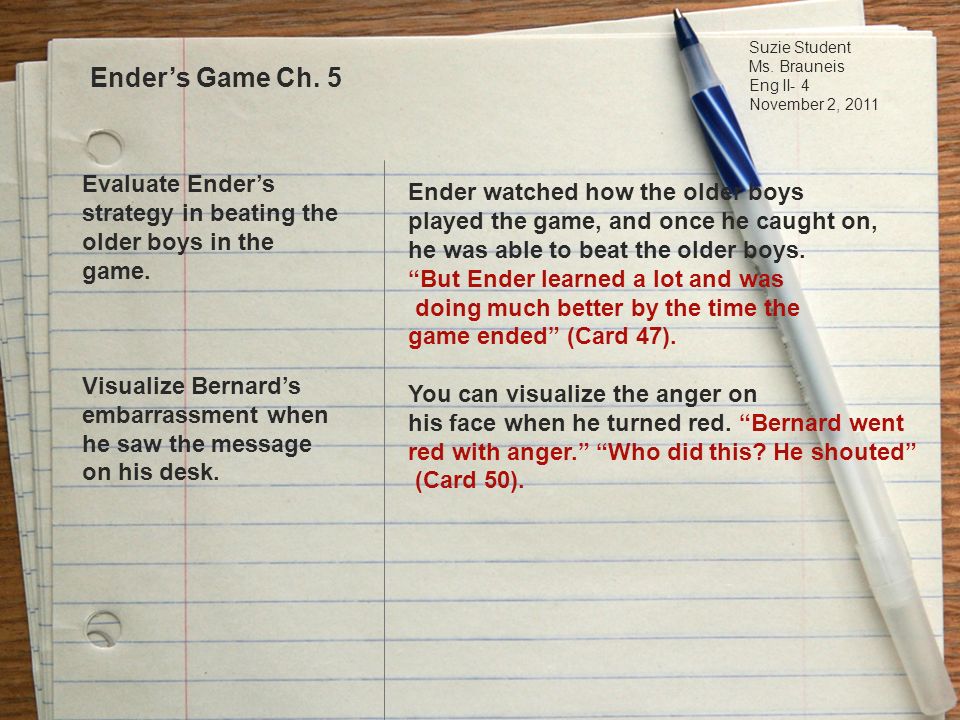 Suzie Student
Ms. Brauneis
Eng II- 4
November 2, 2011
Ender’s Game Ch. 5
Evaluate Ender’s
strategy in beating the
older boys in the
game.
Ender watched how the older boys
played the game, and once he caught on,
he was able to beat the older boys.
“But Ender learned a lot and was
doing much better by the time the
game ended” (Card 47).
Visualize Bernard’s
embarrassment when
he saw the message
on his desk.
You can visualize the anger on
his face when he turned red. “Bernard went
red with anger.” “Who did this? He shouted”
(Card 50).